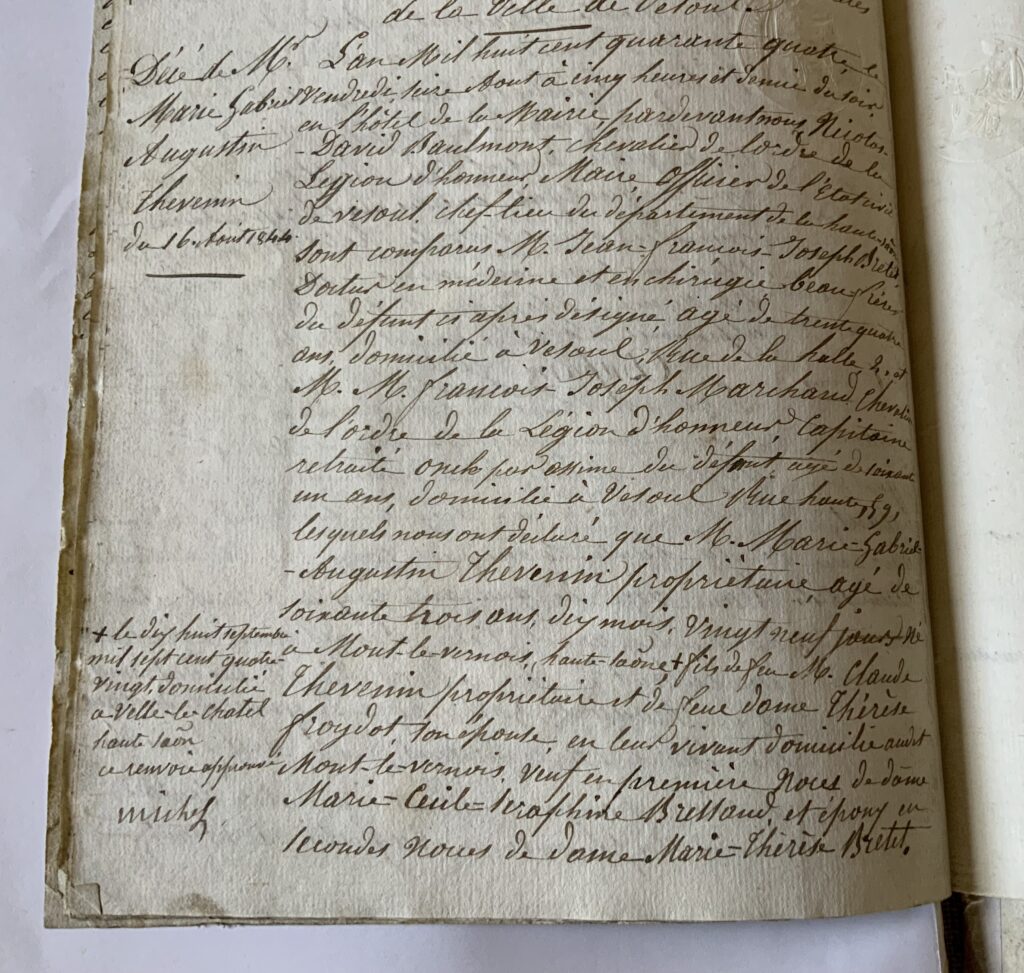 de la Ville de Vesoul.
Décé de Mr.
Marie Gabriel
Augustin
Thevenin
du 16. Aout 1844
L'an Mil huit cent quarante quatre, le
vendredi seize Aout à cinq heures et demie du soir
en l'hôtel de la Mairie pardevant nous Nicolas-
-David Baulmont, chevalier de l'ordre de la
Légion d'honneur, Maire officier de l'Etat civil
de vesoul, chef lieu du département de la haute-saône
sont comparus M. Jean-francois-Joseph Bretet,
Docteur en médecine et en chirugie beau frère
du défunt ci après désigné, agé de trente quatre
ans, domicilié à Vesoul, Rue de la halle, 2. et
M. M. francois Joseph Marchand, Chevalier
de l'ordre de la Légion d'honneur Capitaine
retraité oncle par du défunt, agé de soixante
un ans, domicilié à Vesoul Rue haute, 59,
lesquels nous ont déclaré que M. Marie-Gabriel-
-Augustin Thevenin propriétaire, agé de
soixante trois ans, dix mois, vingt neuf jours, Né
à Mont-le-vernois, haute saône + fils de feu M. Claude
Thevenin propriétaire et de feue dame Thérèse
froydot, son épouse, en leur vivant domicilié audit
Mont-le-vernois, veuf en première Noces de dame
Marie-Cecile-Seraphine Bressand, et époux en
secondes noces de dame Marie-Thérèse Bretet.
+ le dix huit septembre
mil sept cent quatre
vingt, domicilié
à Velle-le-chatel
haute saône
ce renvoie approuvé
michel